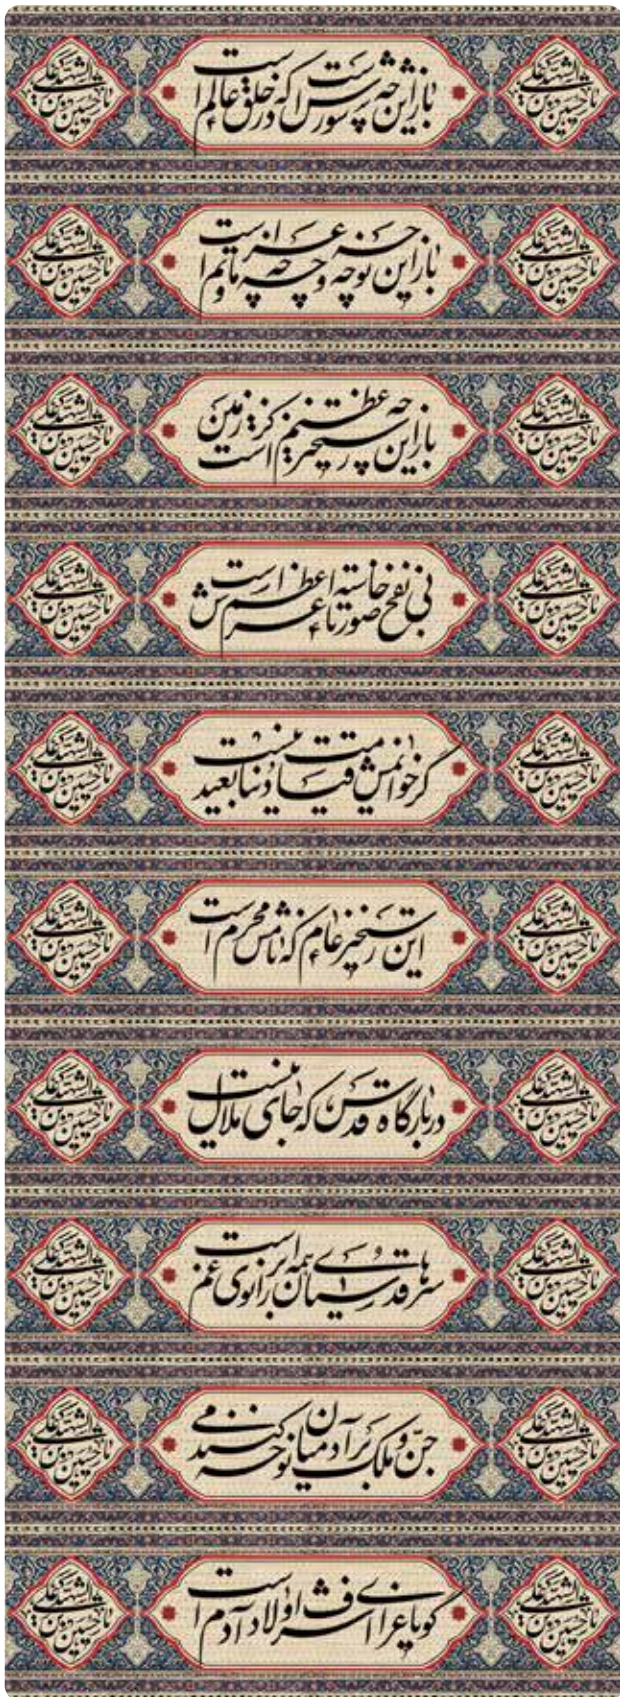 یا حسین بن علی الشهید
باز این چه شورش است که در خلق عالم است
یا حسین بن علی الشهید
یا حسین بن علی الشهید
باز این چه نوحه و چه عزا و چه ماتم است
یا حسین بن علی الشهید
یا حسین بن علی الشهید
باز این چه رستخیز عظیم است کز زمین
یا حسین بن علی الشهید
یا حسین بن علی الشهید
بی نفخ صور خاسته تا عرش اعظم است
یا حسین بن علی الشهید
یا حسین بن علی الشهید
گر خوانمش قیامت دنیا بعید نیست
یا حسین بن علی الشهید
یا حسین بن علی الشهید
این رستخیز عام که نامش محرم است
یا حسین بن علی الشهید
یا حسین بن علی الشهید
در بارگاه قدس که جای ملال نیست
یا حسین بن علی الشهید
یا حسین بن علی الشهید
سرهای قدسیان همه بر زانوی غم است
یا حسین بن علی الشهید
یا حسین بن علی الشهید
جنّ و ملک بر آدمیان نوحه می کنند
یا حسین بن علی الشهید
یا حسین بن علی الشهید
گویا عزای اشرف اولاد آدم است
یا حسین بن علی الشهید